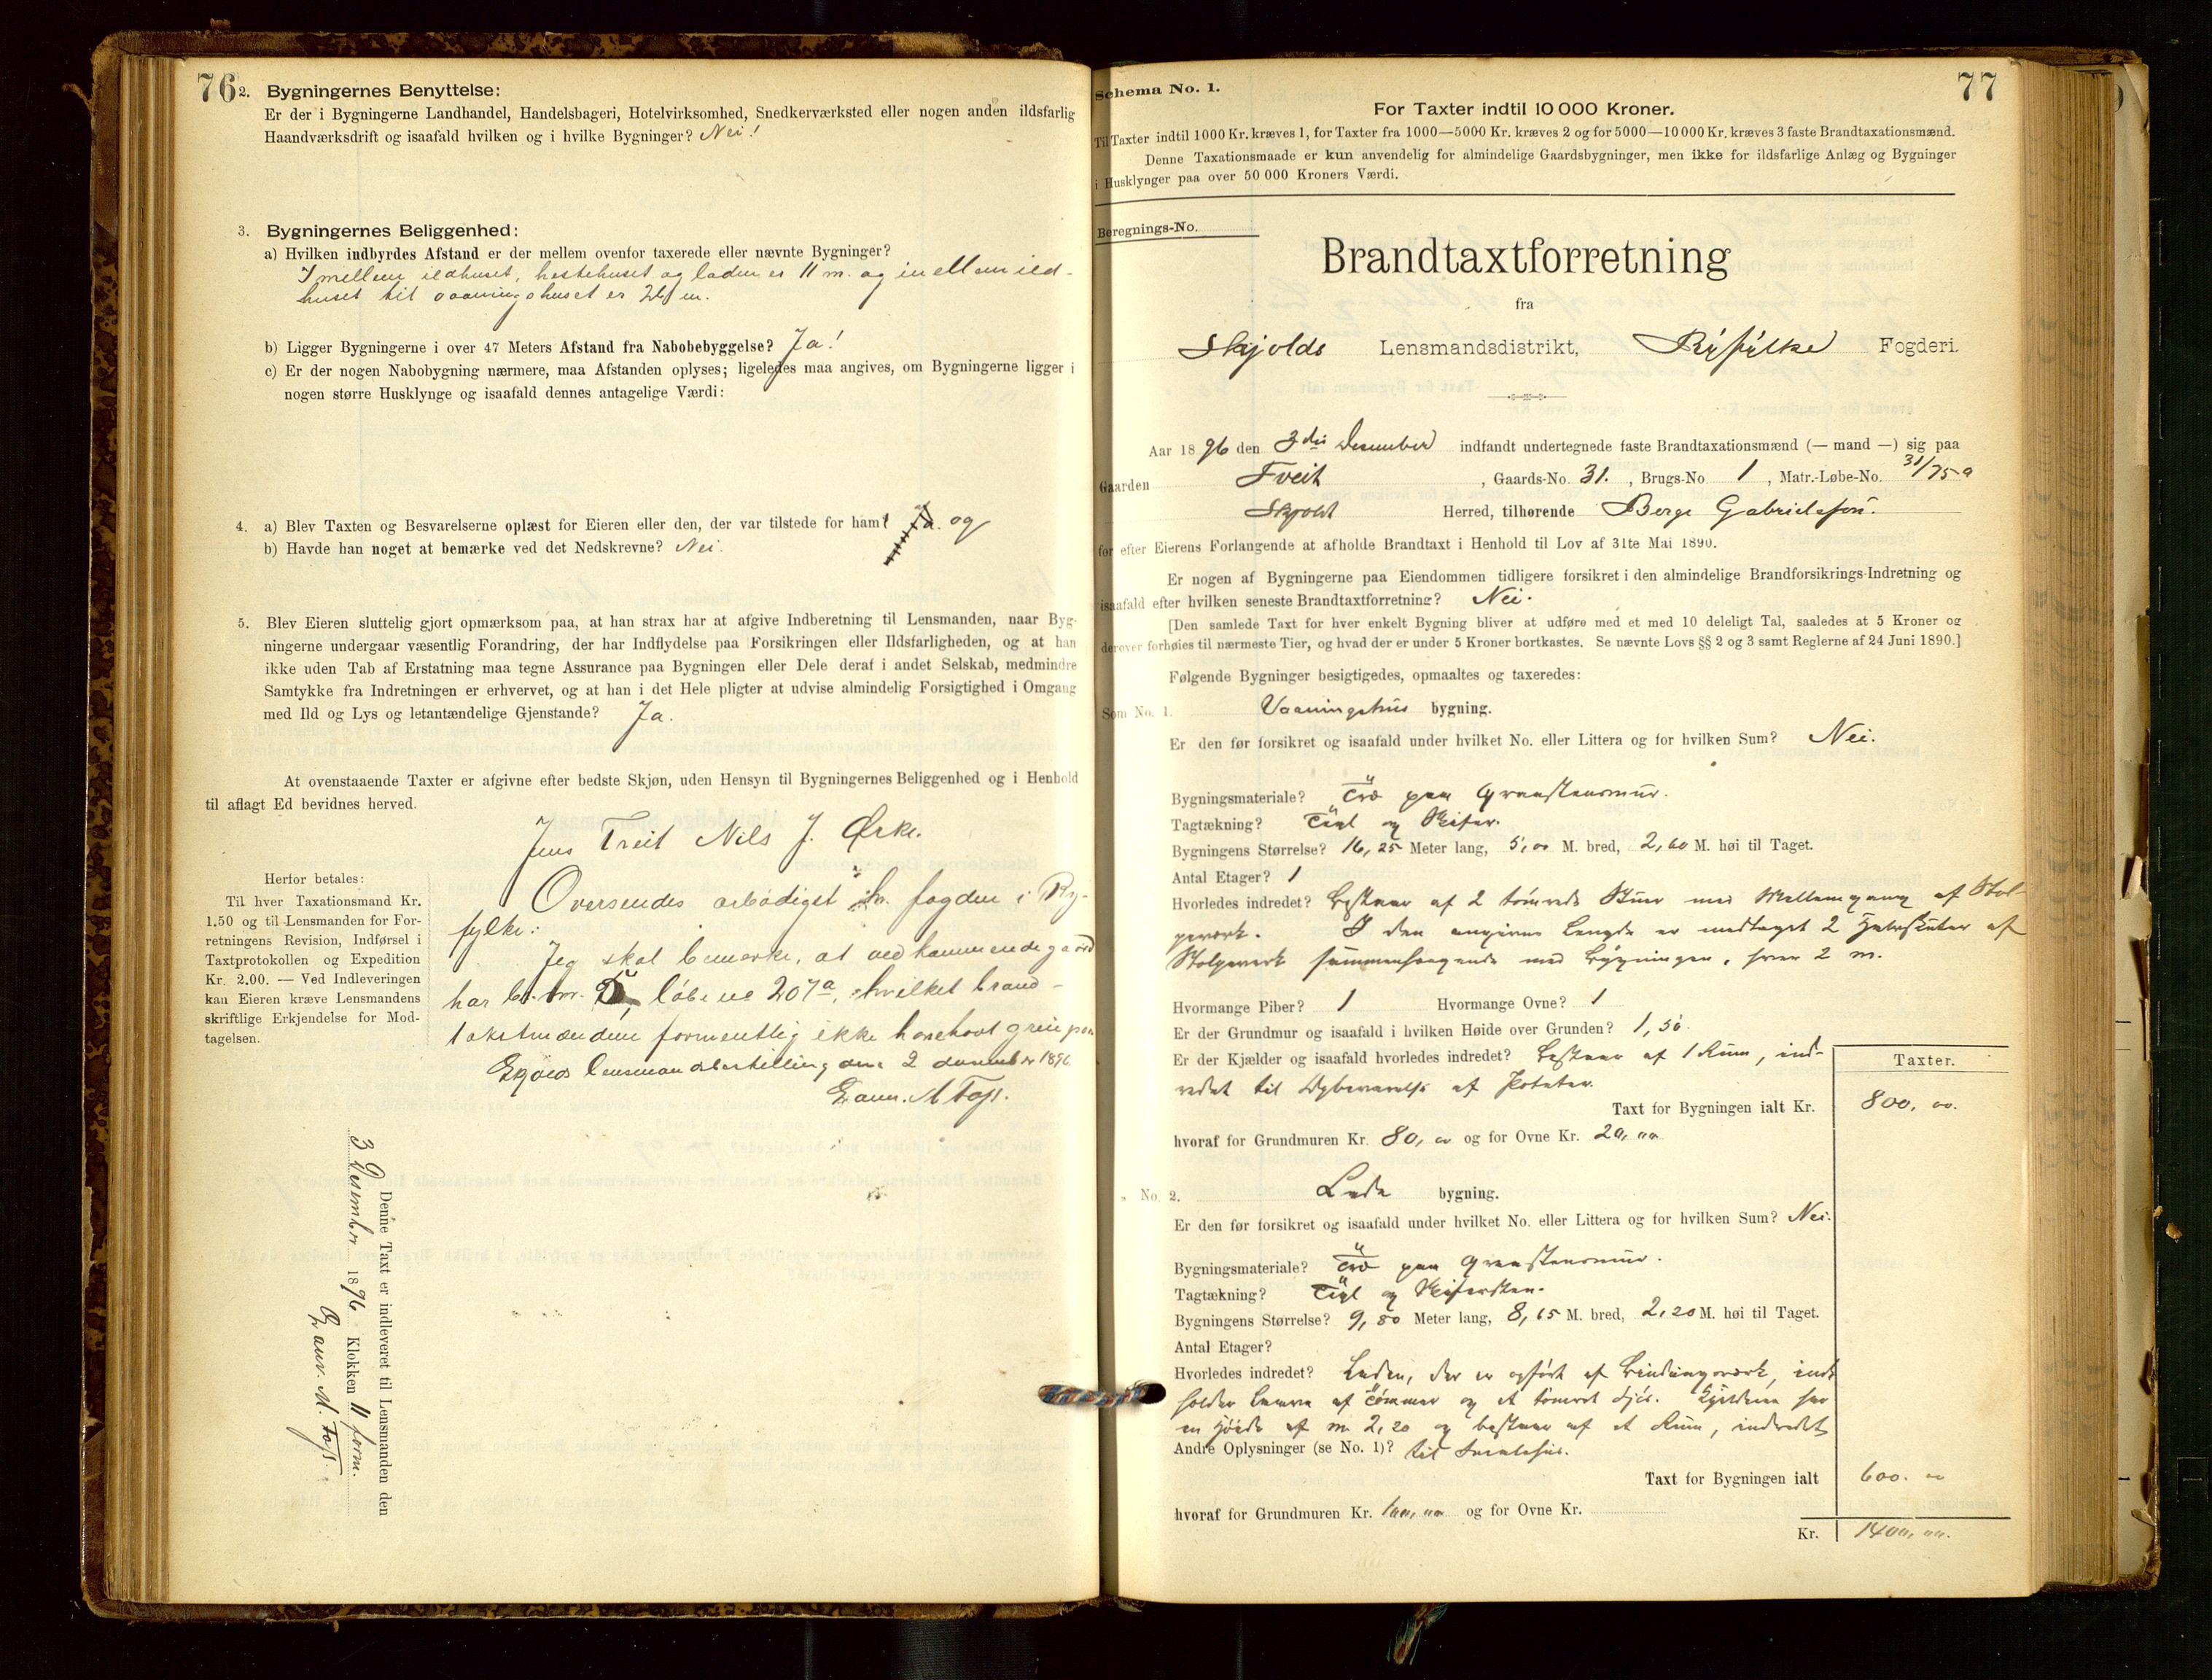 76
2. Bygningernes Benyttelse:
Er der i Bygningerne Landhandel, Handelsbageri, Hotelvirksomhed, Snedkerværksted eller nogen anden ildsfarlig
Haandværksdrift og isaafald hvilken og i hvilke Bygninger? Nei!
3. Bygningernes Beliggenhed:
a) Hvilken indbyrdes Afstand er der mellem ovenfor taxerede eller nævnte Bygninger?
Imellem ildhuset, hestehuset og laden er 11 m. og imellem ild-
huset til vaaningshuset er 26 m.
b) Ligger Bygningerne i over 47 Meters Afstand fra Nabobebyggelse? Ja!
c) Er der nogen Nabobygning nærmere, maa Afstanden oplyses; ligeledes maa angives, om Bygningerne ligger i
nogen større Husklynge og isaafald dennes antagelige Værdi:
4. a) Blev Taxten og Besvarelserne oplæst for Eieren eller den, der var tilstede for ham? Ja. og
b) Havde han noget at bemærke ved det Nedskrevne? Nei.
5. Blev Eieren sluttelig gjort opmærksom paa, at han strax har at afgive Indberetning til Lensmanden, naar Byg-
ningerne undergaar væsentlig Forandring, der har Indflydelse paa Forsikringen eller Ildsfarligheden, og at han
ikke uden Tab af Erstatning maa tegne Assurance paa Bygningen eller Dele deraf i andet Selskab, medmindre
Samtykke fra Indretningen er erhvervet, og at han i det Hele pligter at udvise almindelig Forsigtighed i Omgang
med Ild og Lys og letantændelige Gjenstande? Ja.
At ovenstaaende Taxter er afgivne efter bedste Skjøn, uden Hensyn til Bygningernes Beliggenhed og i Henhold
til aflagt Ed bevidnes herved.
Jens Tveit Nils J. Ørke.
Oversendes ærbødigst hr. fogden i Ry-
fylke.
Jeg skal bemærke, at vedkommende gaard
har br. nr. 5, løbe no 207a, hvilket brand-
takstmændene formentlig ikke have havt greie paa
Skjolds lensmandsbestilling den 2 december 1896.
Gaun. M Foss.
Herfor betales:
Til hver Taxationsmand Kr.
1.50 og til Lensmanden for For-
retningens Revision, Indførsel i
Taxtprotokollen og Expedition
Kr. 2.00. — Ved Indleveringen
kan Eieren kræve Lensmandens
skriftlige Erkjendelse for Mod-
tagelsen.
Denne Taxt er indleveret til Lensmanden den
3 Desember 1896 Klokken 11 form.
Gaun. M. Foss.
77
Schema No. 1.
For Taxter indtil 10 000 Kroner.
Til Taxter indtil 1000 Kr. kræves 1, for Taxter fra 1000—5000 Kr. kræves 2 og for 5000—10 000 Kr. kræves 3 faste Brandtaxationsmænd.
Denne Taxationsmaade er kun anvendelig for almindelige Gaardsbygninger, men ikke for ildsfarlige Anlæg og Bygninger
i Husklynger paa over 50 000 Kroners Værdi.
Beregnings-No.
Brandtaxtforretning
fra
Skjolds Lensmandsdistrikt, Ryfylke Fogderi.
Aar 1896 den 3die Desember indfandt undertegnede faste Brandtaxationsmænd (— mand —) sig paa
Gaarden Tveit, Gaards-No. 31., Brugs-No. 1, Matr.-Løbe-No. 31/75a
Skjold Herred, tilhørende Berge Gabrielsen.
for efter Eierens Forlangende at afholde Brandtaxt i Henhold til Lov af 31te Mai 1890.
Er nogen af Bygningerne paa Eiendommen tidligere forsikret i den almindelige Brandforsikrings-Indretning og
isaafald efter hvilken seneste Brandtaxtforretning? Nei.
[Den samlede Taxt for hver enkelt Bygning bliver at udføre med et med 10 deleligt Tal, saaledes at 5 Kroner og
derover forhøies til nærmeste Tier, og hvad der er under 5 Kroner bortkastes. Se nævnte Lovs §§ 2 og 3 samt Reglerne af 24 Juni 1890.]
Følgende Bygninger besigtigedes, opmaaltes og taxeredes:
Som No. 1. Vaaningshus bygning.
Er den før forsikret og isaafald under hvilket No. eller Littera og for hvilken Sum? Nei.
Bygningsmateriale? Træ paa Graastensmur.
Tagtækning? Tegl og Skifer.
Bygningens Størrelse? 16,25 Meter lang, 5,00 M. bred, 2,60 M. høi til Taget.
Antal Etager? 1
Hvorledes indredet? Bestaar af 2 tømrede Stuer med Mellemgang af Stol-
peværk. I den angivne Længde er medtaget 2 Halvskuter af
Stolpeværk sammenhængende med Bygningen, hver 2 m.
Hvormange Piber? 1 Hvormange Ovne? 1
Er der Grundmur og isaafald i hvilken Høide over Grunden? 1,50.
Er der Kjælder og isaafald hvorledes indredet? Bestaar af 1 Rum, ind-
redet til Opbevarelse af Poteter.
Taxter.
Taxt for Bygningen ialt Kr. 800,00.
hvoraf for Grundmuren Kr. 80,00 og for Ovne Kr. 20,00
No. 2. Lade bygning.
Er den før forsikret og isaafald under hvilket No. eller Littera og for hvilken Sum? Nei.
Bygningsmateriale? Træ paa Graastensmur.
Tagtækning? Tegl og Skifersten.
Bygningens Størrelse? 9,80 Meter lang, 8,65 M. bred, 2,20 M. høi til Taget.
Antal Etager?
Hvorledes indredet? Laden, der er opført af Bindingsværk, inde-
holder Laave af Tømmer og et tømret Fjøs. Kjelderen har
en Høide af m. 2,20 og bestaar af et Rum, indredet
Andre Oplysninger (se No. 1)? til
Taxt for Bygningen ialt 600.00
hvoraf for Grundmuren Kr. 100,00 og for Ovne Kr.
Kr. 1400,00.